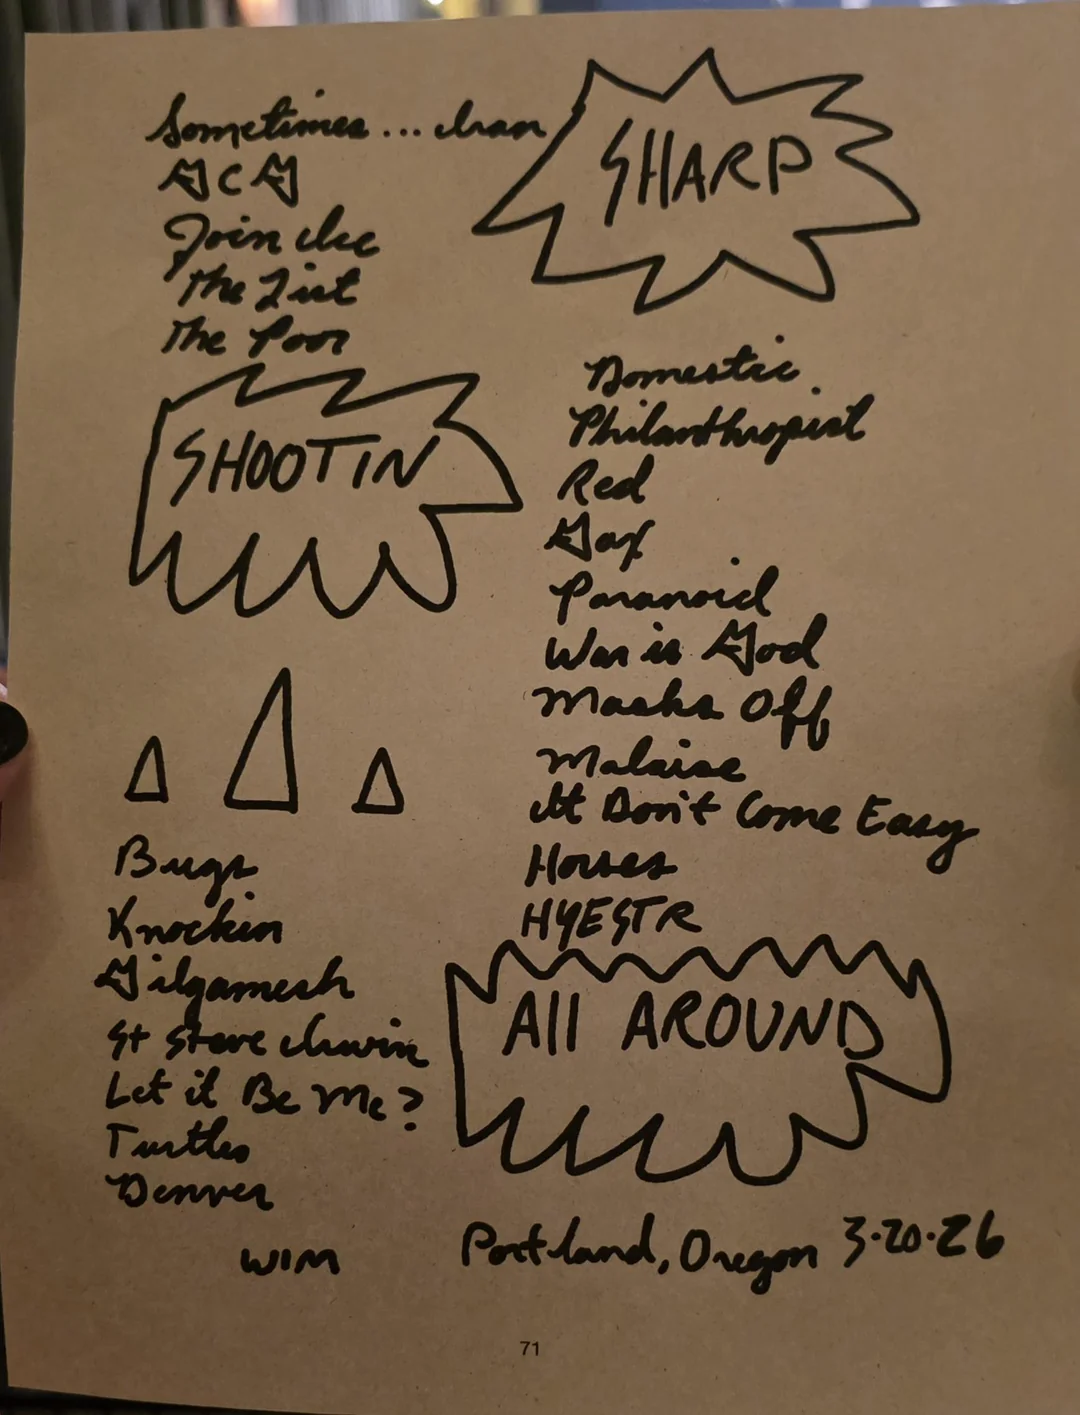 Sometimes ... Iran
GCG
Join Ice
The List
The Poor
SHARP
SHOOTIN
Domestic
Philanthropist
Red
Paranoid
War is God
Masks Off
Malaise
It Don't Come Easy
Horses
HYESTR
Bugs
Knockin
Gilgamesh
St Steve Irwin
Let it Be Me?
Turtles
Denver
WIM
All AROUND
Portland, Oregon 3·20·26
71